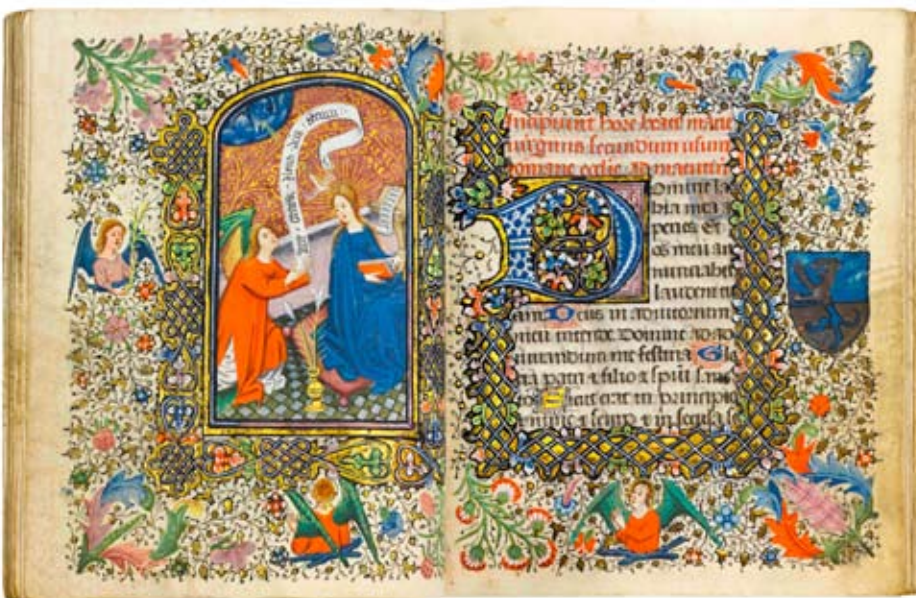 Incipiunt hore beate marie
virginis secundum usum
romane ecclie. Ad matuti
Domine la
bia mea a
peries Et
os meu an
nunciabit
laudem tu
am Deus in adiutorium
meu intende Domine ad ad
iuvandum me festina Glo
ria patri & filio & spui s
Sicut erat in principio
& nunc & semp & in secula s